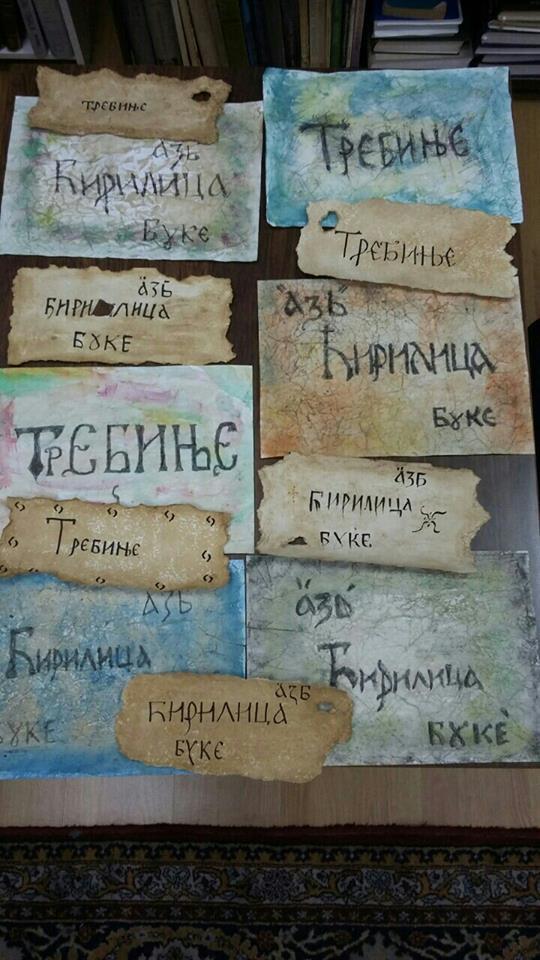 требиње
азъ
Ћирилица
Буке
Требиње
Требиње
азъ
ЋИРИЛИЦА
БУКЕ
азъ
Ћирилица
Буке
ТРЕБИЊЕ
азъ
Ћирилица
БУКЕ
Требиње
азъ
Ћирилица
БУКЕ
азъ
Ћирилица
БУКЕ
азъ
ЋИРИЛИЦА
БУКЕ